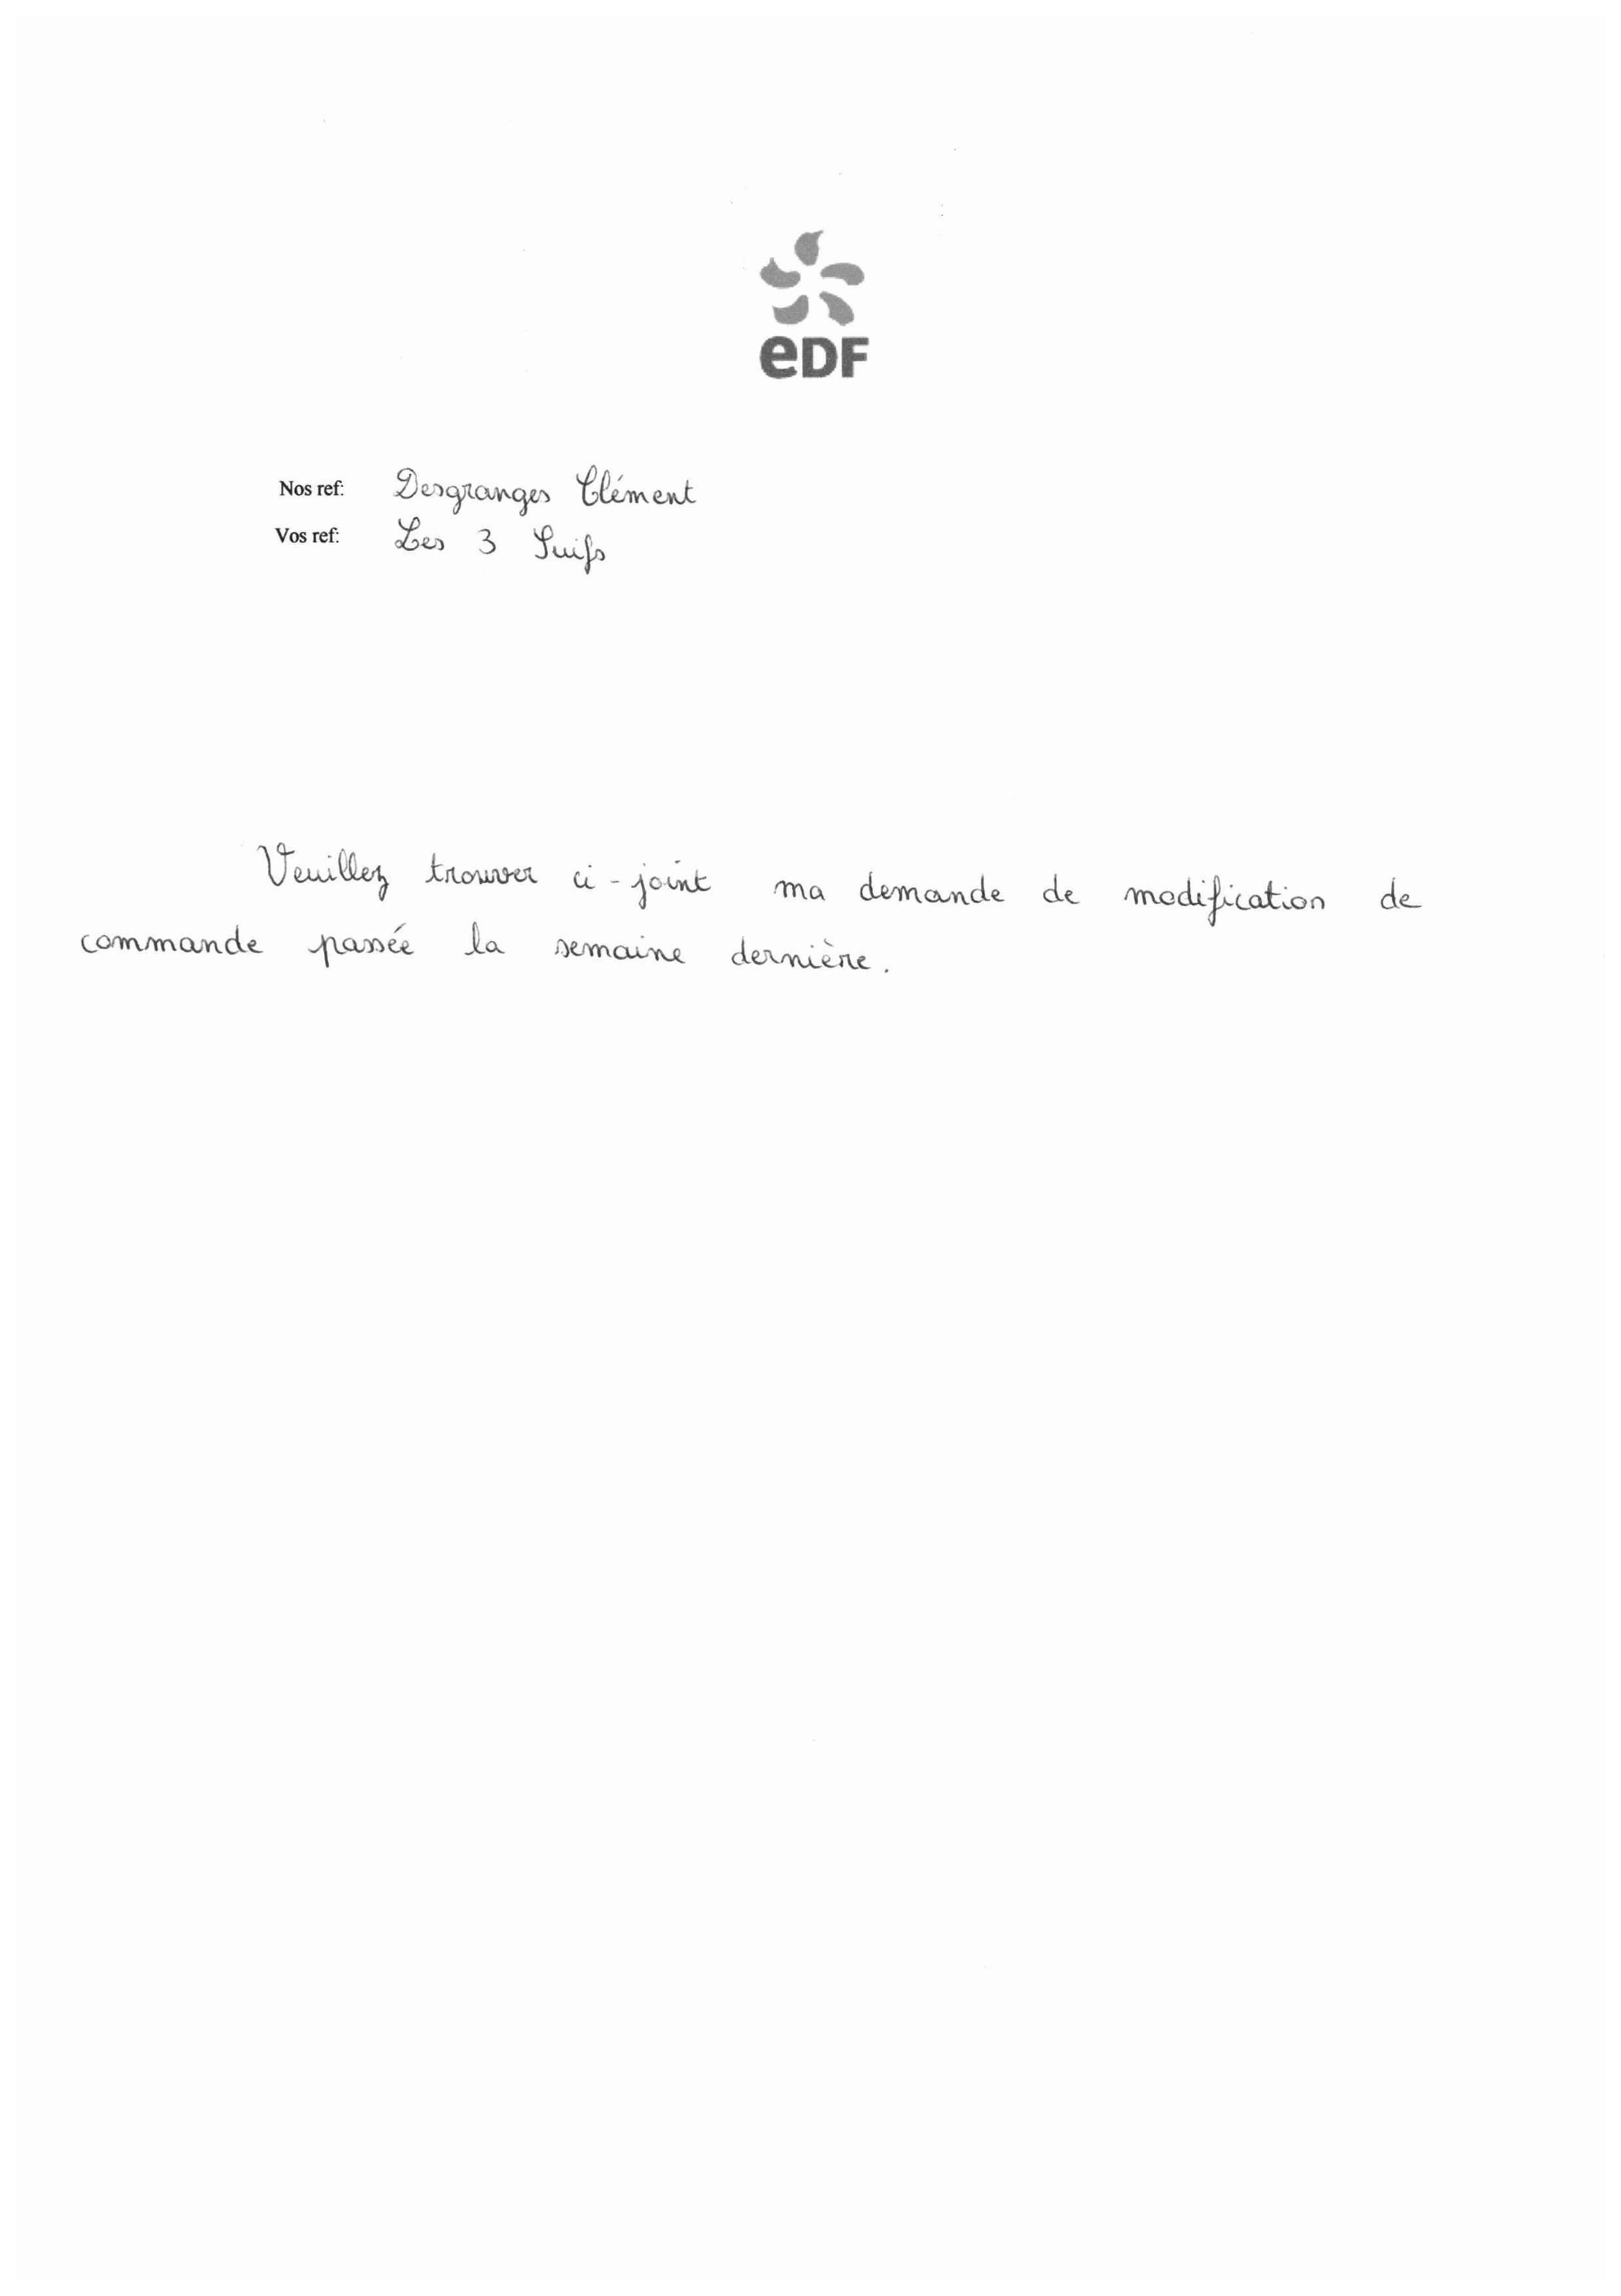 eDF
Nos ref: Desgranges Clément
Vos ref: Les 3 Suifs
Veuillez trouver ci-joint ma demande de modification de
commande passée la semaine dernière.